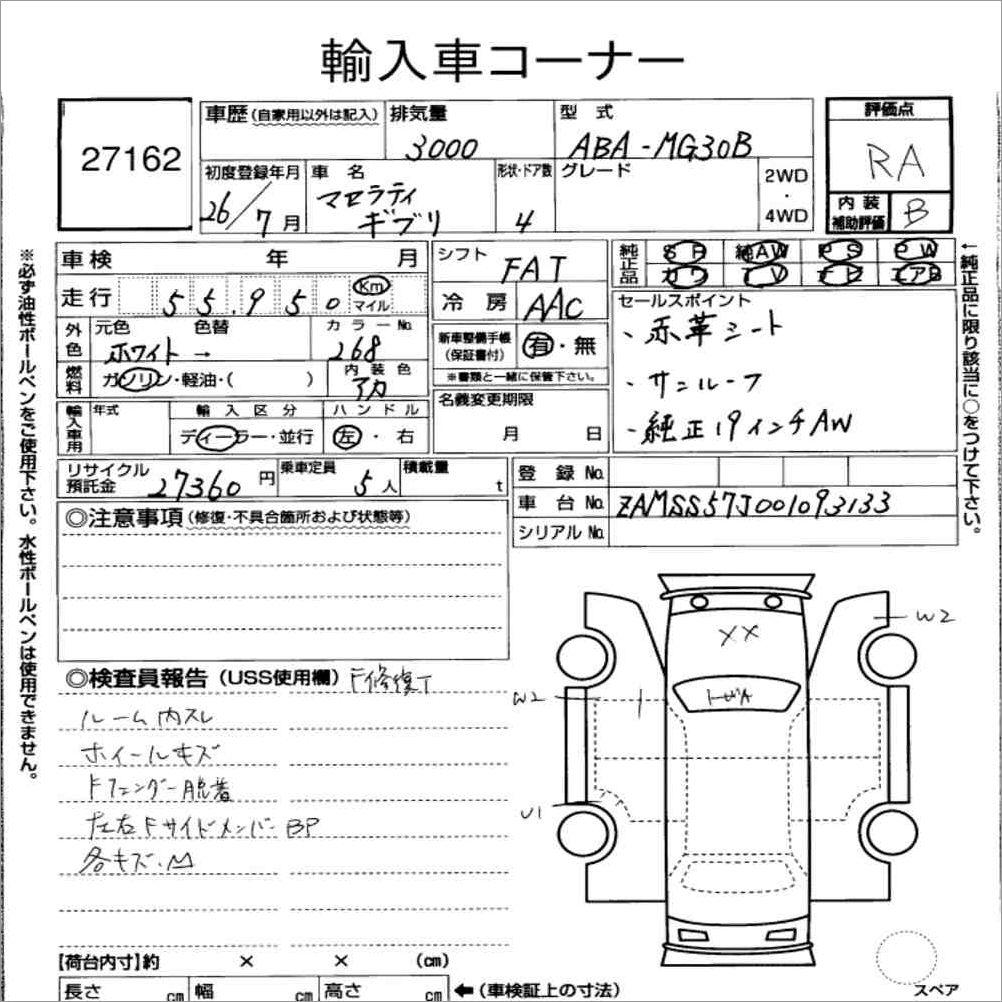 輸入車コーナー
27162
車歴 (自家用以外は記入)
排気量
3000
型 式
ABA-MG30B
評価点
RA
内装補助評価
B
初度登録年月
26/7月
車 名
マセラティ
ギブリ
形状・ドア数
4
グレード
2WD
・
4WD
車検 年 月
走行 55,950 Km マイル
シフト
FAT
冷 房
AAC
純正品
SR 純AW PS PW
カワ TV ナビ エアB
外色
元色 色替
ホワイト →
カラーNo.
268
燃料
ガソリン・軽油・( )
内装色
アカ
新車整備手帳
(保証書付)
有・無
※書類と一緒に保管下さい。
名義変更期限
月 日
セールスポイント
・赤革シート
・サンルーフ
・純正19インチAW
輸入車用
年式
輸入区分
ディーラー・並行
ハンドル
左・右
リサイクル預託金
27360円
乗車定員
5人
積載量
t
登録No.
車台No. ZAMSS57J001093133
シリアルNo.
◎注意事項 (修復・不具合箇所および状態等)
◎検査員報告 (USS使用欄) F修復T
ルーム内スレ
ホイールキズ
Fフェンダー脱着
左右Fサイドメンバー BP
各キズ.M
XX
トビA
W2
W2
U1
スペア
【荷台内寸】約 × × (cm)
長さ cm 幅 cm 高さ cm ←(車検証上の寸法)
※必ず油性ボールペンをご使用下さい。水性ボールペンは使用できません。
←純正品に限り該当に○をつけて下さい。